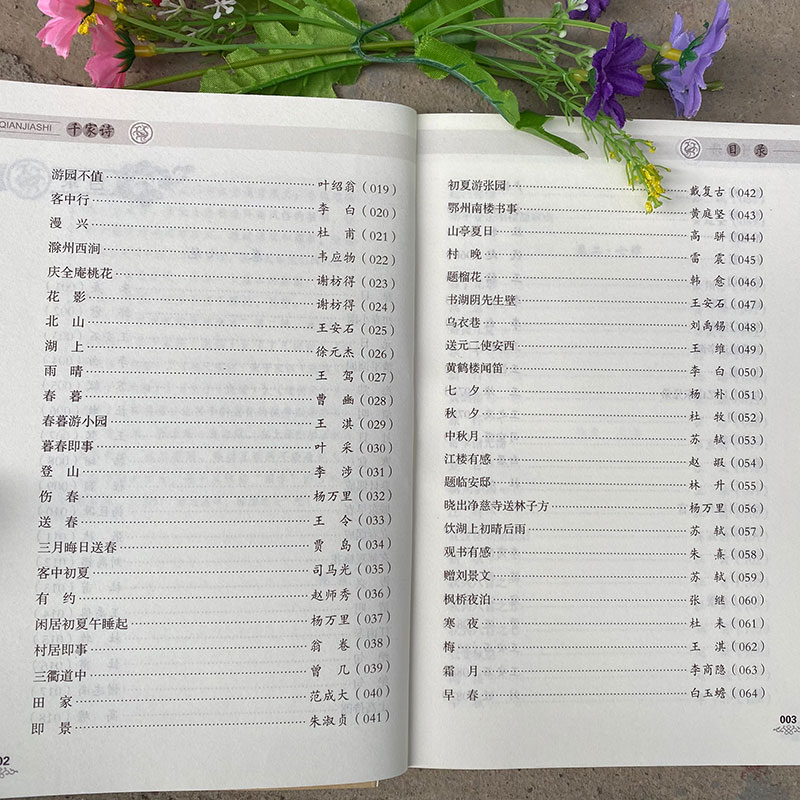 QIANJIASHI 千家诗
游园不值 叶绍翁（019）
客中行 李 白（020）
漫 兴 杜 甫（021）
滁州西涧 韦应物（022）
庆全庵桃花 谢枋得（023）
花 影 谢枋得（024）
北 山 王安石（025）
湖 上 徐元杰（026）
雨 晴 王 驾（027）
春 暮 曹 豳（028）
春暮游小园 王 淇（029）
暮春即事 叶 采（030）
登 山 李 涉（031）
伤 春 杨万里（032）
送 春 王 令（033）
三月晦日送春 贾 岛（034）
客中初夏 司马光（035）
有 约 赵师秀（036）
闲居初夏午睡起 杨万里（037）
村居即事 翁 卷（038）
三衢道中 曾 几（039）
田 家 范成大（040）
即 景 朱淑贞（041）
02
目 录
初夏游张园 戴复古（042）
鄂州南楼书事 黄庭坚（043）
山亭夏日 高 骈（044）
村 晚 雷 震（045）
题榴花 韩 愈（046）
书湖阴先生壁 王安石（047）
乌衣巷 刘禹锡（048）
送元二使安西 王 维（049）
黄鹤楼闻笛 李 白（050）
七 夕 杨 朴（051）
秋 夕 杜 牧（052）
中秋月 苏 轼（053）
江楼有感 赵 嘏（054）
题临安邸 林 升（055）
晓出净慈寺送林子方 杨万里（056）
饮湖上初晴后雨 苏 轼（057）
观书有感 朱 熹（058）
赠刘景文 苏 轼（059）
枫桥夜泊 张 继（060）
寒 夜 杜 耒（061）
梅 王 淇（062）
霜 月 李商隐（063）
早 春 白玉蟾（064）
003